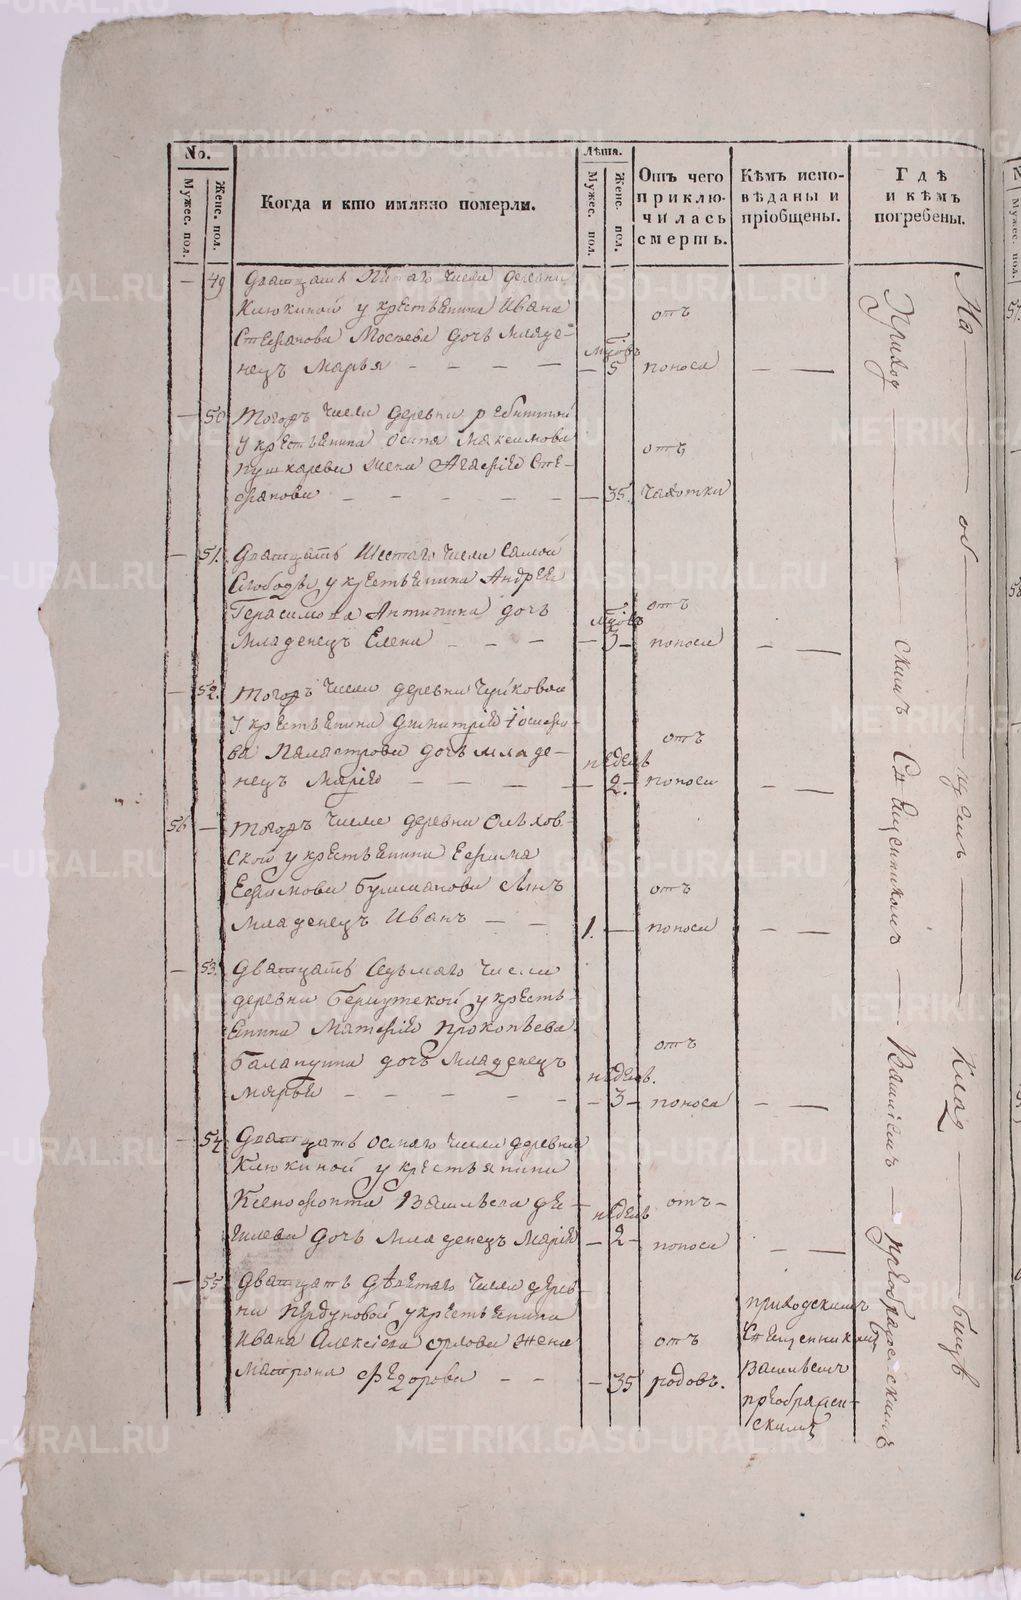 No.
Мужес. пол.
Женс. пол.
Когда и кто имянно померли.
Лѣта.
Мужес. пол.
Женс. пол.
Отъ чего приклю-
чилась
смерть.
Кѣмъ испо-
вѣданы и
пріобщены.
Гдѣ
и кѣмъ
погребены.
— 49 Дватцать Пятаго числа деревни
Клюкиной у крестьянина Ивана
Стефанова Мосѣева дочь младе-
нецъ Марья — — — — мцовъ 5 отъ поноса — —
— 50 Тогожъ числа деревни
у крестьянина Осипа Максимова
Пушкарева жена Агафія Сте-
фанова — — — — — 35. отъ чахотки
— 51. Дватцать Шестаго числа Самой
Слободы у крестьянина Андрея
Герасимова Антипина дочь
младенецъ Елена — — — мцовъ 3 — отъ поноса — —
— 52. Тогожъ числа деревни
у крестьянина Димитрія Іосифо-
ва дочь младе-
нецъ Марія — — — недель 2. отъ поноса — —
56 — Тогожъ числа деревни Ольхов-
ской у крестьянина Ефима
Ефимова Булшакова сынъ
младенецъ Иванъ — — 1. — отъ поноса — —
— 53. Дватцать Седьмаго числа
деревни у кресть-
янина Матфія Прокопьева
Балакина дочь младенецъ
Марья — — — — — недель. 3 — отъ поноса — —
— 54 Дватцать осмаго числа деревни
Клюкиной у крестьянина
Ксенофонта Васильева
дочь младенецъ Марія — недель 2 — отъ поноса — —
— 55 Дватцать девятаго числа дерев-
ни Пердуновой у крестьянина
Ивана Алексіева Орлова жена
Матрона Федорова — — — 35 отъ родовъ.
приходскимъ
Священникомъ
Васильемъ
преображен-
скимъ
На — об — щемъ — Клад — бищѣ
Приход — скимъ Священникомъ — Василіемъ — преображенскимъ